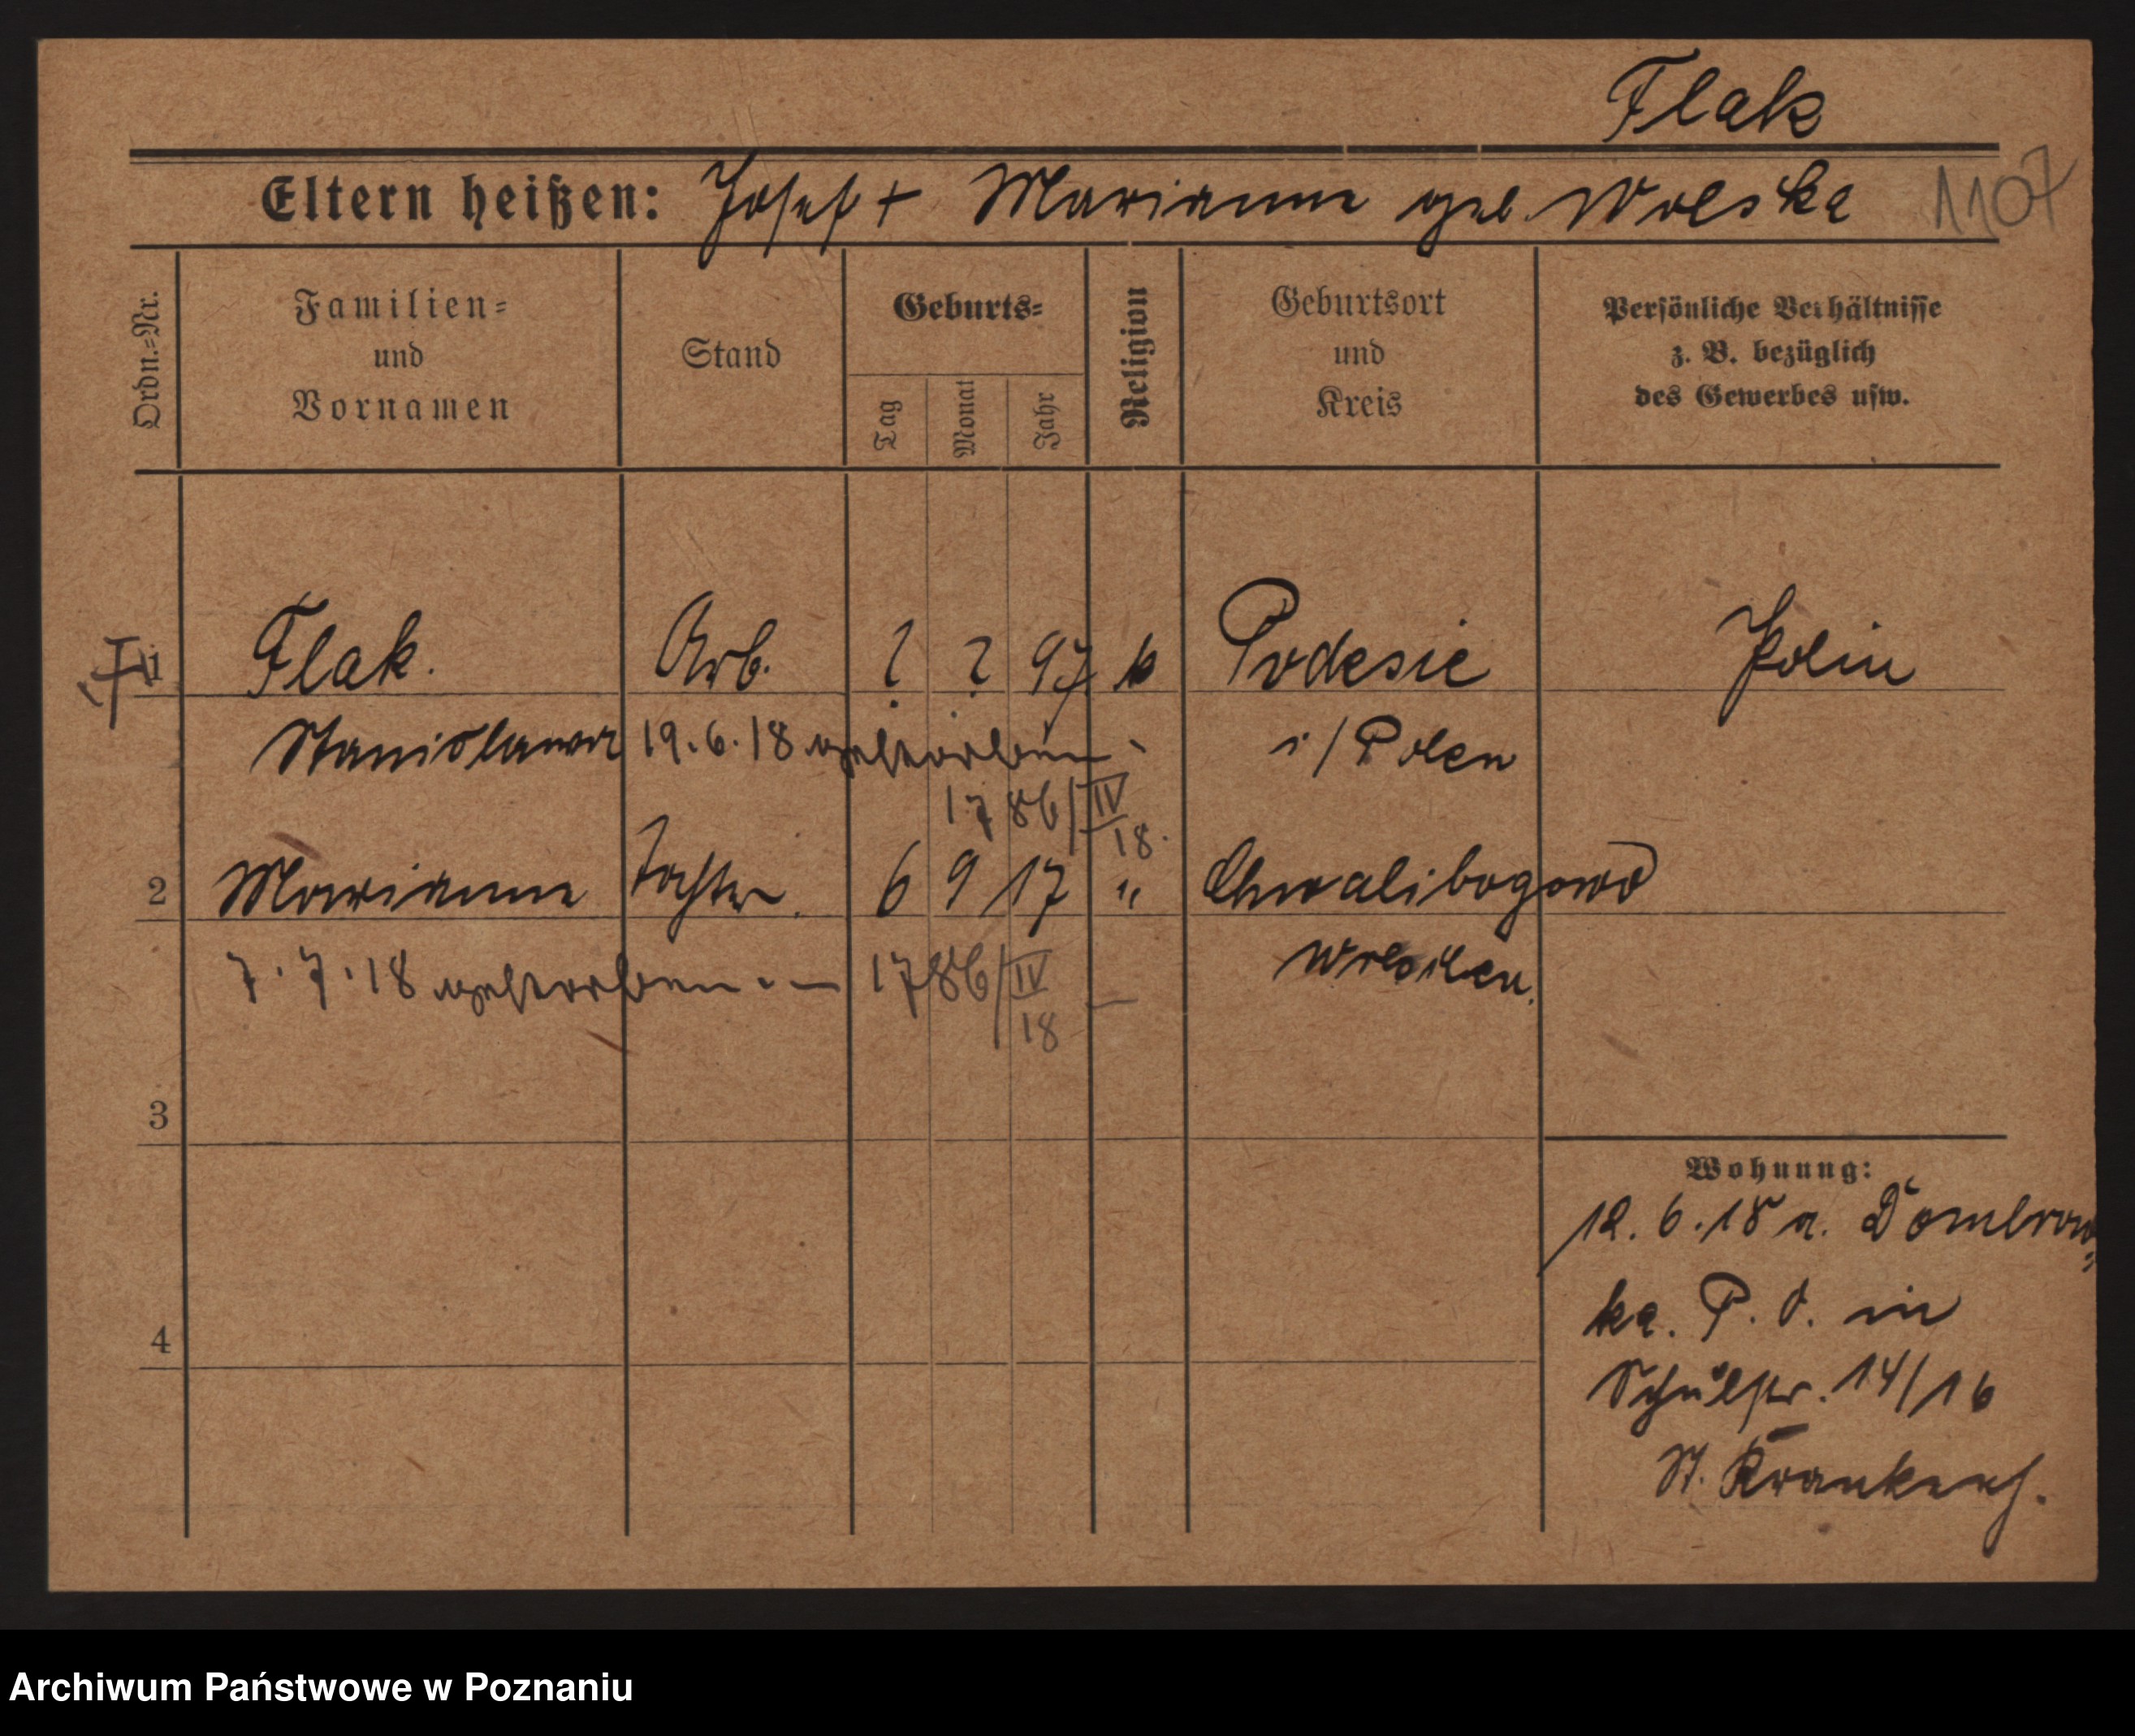 Flak
Eltern heißen: Josef + Marianna geb. Wolska 1107
Ordn.=Nr.
Familien=
und
Vornamen
Stand
Geburts=
Tag
Monat
Jahr
Religion
Geburtsort
und
Kreis
Persönliche Verhältnisse
z. B. bezüglich
des Gewerbes usw.
1 Flak. Arb. ? ? 97 k Podesie Polin
Stanislawa 19.6.18 gestorben. i/Polen
1786/IV
18.
2 Marianna Tochter. 6 9 17 " Chwalibogowo
7.7.18 gestorben. — 1786/IV — Wreschen.
18
3
4
Wohnung:
12.6.18 a. Dombrow=
ka. P. O. in
Schulstr. 14/16
St. Krankenh.
Archiwum Państwowe w Poznaniu